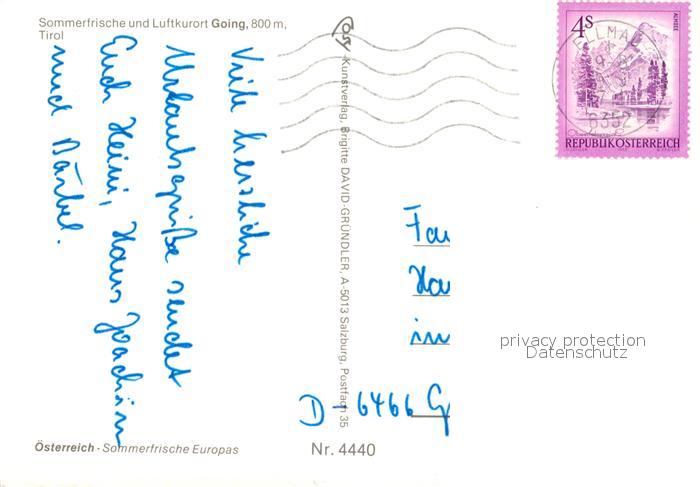 Sommerfrische und Luftkurort Going, 800 m,
Tirol
Viele herzliche
Urlaubsgrüße sendet
Euch Heini, Hans Joachim
und Bärbel.
Cosy
Kunstverlag, Brigitte DAVID-GRÜNDLER, A-5013 Salzburg, Postfach 35
4S
ALMSEE
ELLMAU
6352
REPUBLIK ÖSTERREICH
Fa
Ha
in
D-6466 G
privacy protection
Datenschutz
Österreich - Sommerfrische Europas
Nr. 4440